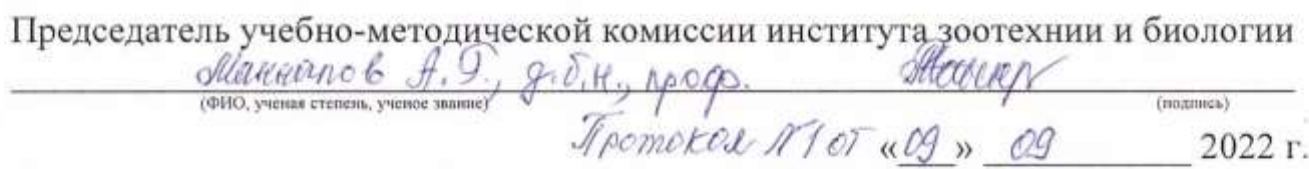 Председатель учебно-методической комиссии института зоотехнии и биологии
Маннапов А.Г., д.б.н., проф.
(ФИО, ученая степень, ученое звание) (подпись)
Протокол №1 от «09» 09 2022 г.